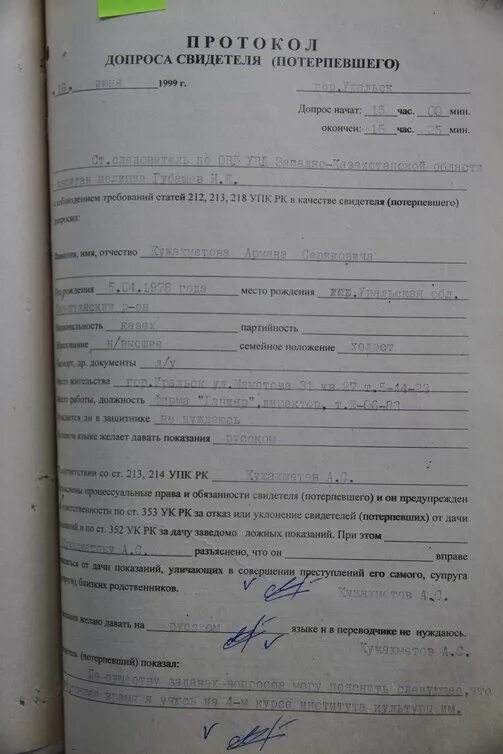 ПРОТОКОЛ
ДОПРОСА СВИДЕТЕЛЯ (ПОТЕРПЕВШЕГО)
16 июня 1999 г. гор.Уральск
Допрос начат: 15 час. 00 мин.
окончен: 15 час. 35 мин.
Ст.следователь по ОВД УВД Западно-Казахстанской области
капитан полиции Губашев Н.Е.
с соблюдением требований статей 212, 213, 218 УПК РК в качестве свидетеля (потерпевшего)
допросил:
Фамилия, имя, отчество Кужахметова Армана Сериковича
Год рождения 5.04.1978 года место рождения Уральская обл.
р-он
Национальность казах партийность
Образование н/высшее семейное положение холост
Паспорт, др. документы л/у
Место жительства гор.Уральск ул.Маметова 31 кв 27 т.5-44-23
Место работы, должность Фирма "Данияр", директор, т.2-06-83
Нуждается ли в защитнике не нуждаюсь
На каком языке желает давать показания русском
В соответствии со ст. 213, 214 УПК РК Кужахметов А.С.
разъяснены процессуальные права и обязанности свидетеля (потерпевшего) и он предупрежден
ответственности по ст. 353 УК РК за отказ или уклонение свидетелей (потерпевших) от дачи
показаний и по ст. 352 УК РК за дачу заведомо ложных показаний. При этом
Кужахметову А.С. разъяснено, что он вправе
отказаться от дачи показаний, уличающих в совершении преступлений его самого, супруга
(супруги), близких родственников.
Кужахметов А.С.
Показания желаю давать на русском языке и в переводчике не нуждаюсь.
Кужахметов А.С.
Свидетель (потерпевший) показал:
По существу заданных вопросов могу пояснить следующее, что
время я учусь на 4-м курсе института культуры им.